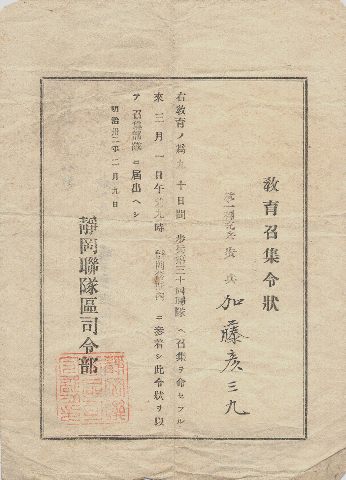 教育召集令狀
第一補充兵 步兵 加藤彦三九
右教育ノ爲九十日間 步兵第三十四聯隊ヘ召集ヲ命セラル
來三月一日午前九時 ニ參着シ此令狀ヲ以
テ召集部隊ニ届出ヘシ
明治卅二年二月九日
靜岡聯隊區司令部